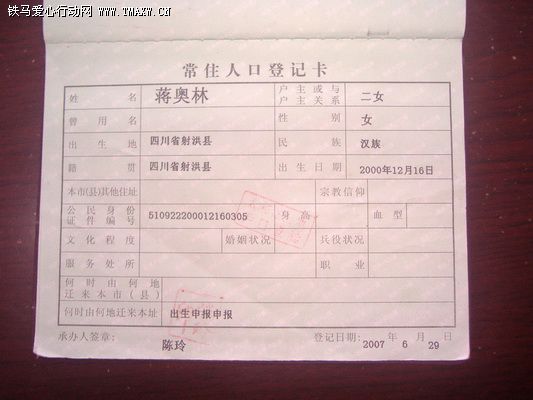 铁马爱心行动网 www.TMAXW.CN
常住人口登记卡
姓名 蒋奥林 户主或与户主关系 二女
曾用名 性别 女
出生地 四川省射洪县 民族 汉族
籍贯 四川省射洪县 出生日期 2000年12月16日
本市(县)其他住址 宗教信仰
公民身份证件编号 510922200012160305 身高 血型
文化程度 婚姻状况 兵役状况
服务处所 职业
何时由何地迁来本市(县)
何时由何地迁来本址 出生申报申报
承办人签章: 陈玲 登记日期: 2007 年 6 月 29 日